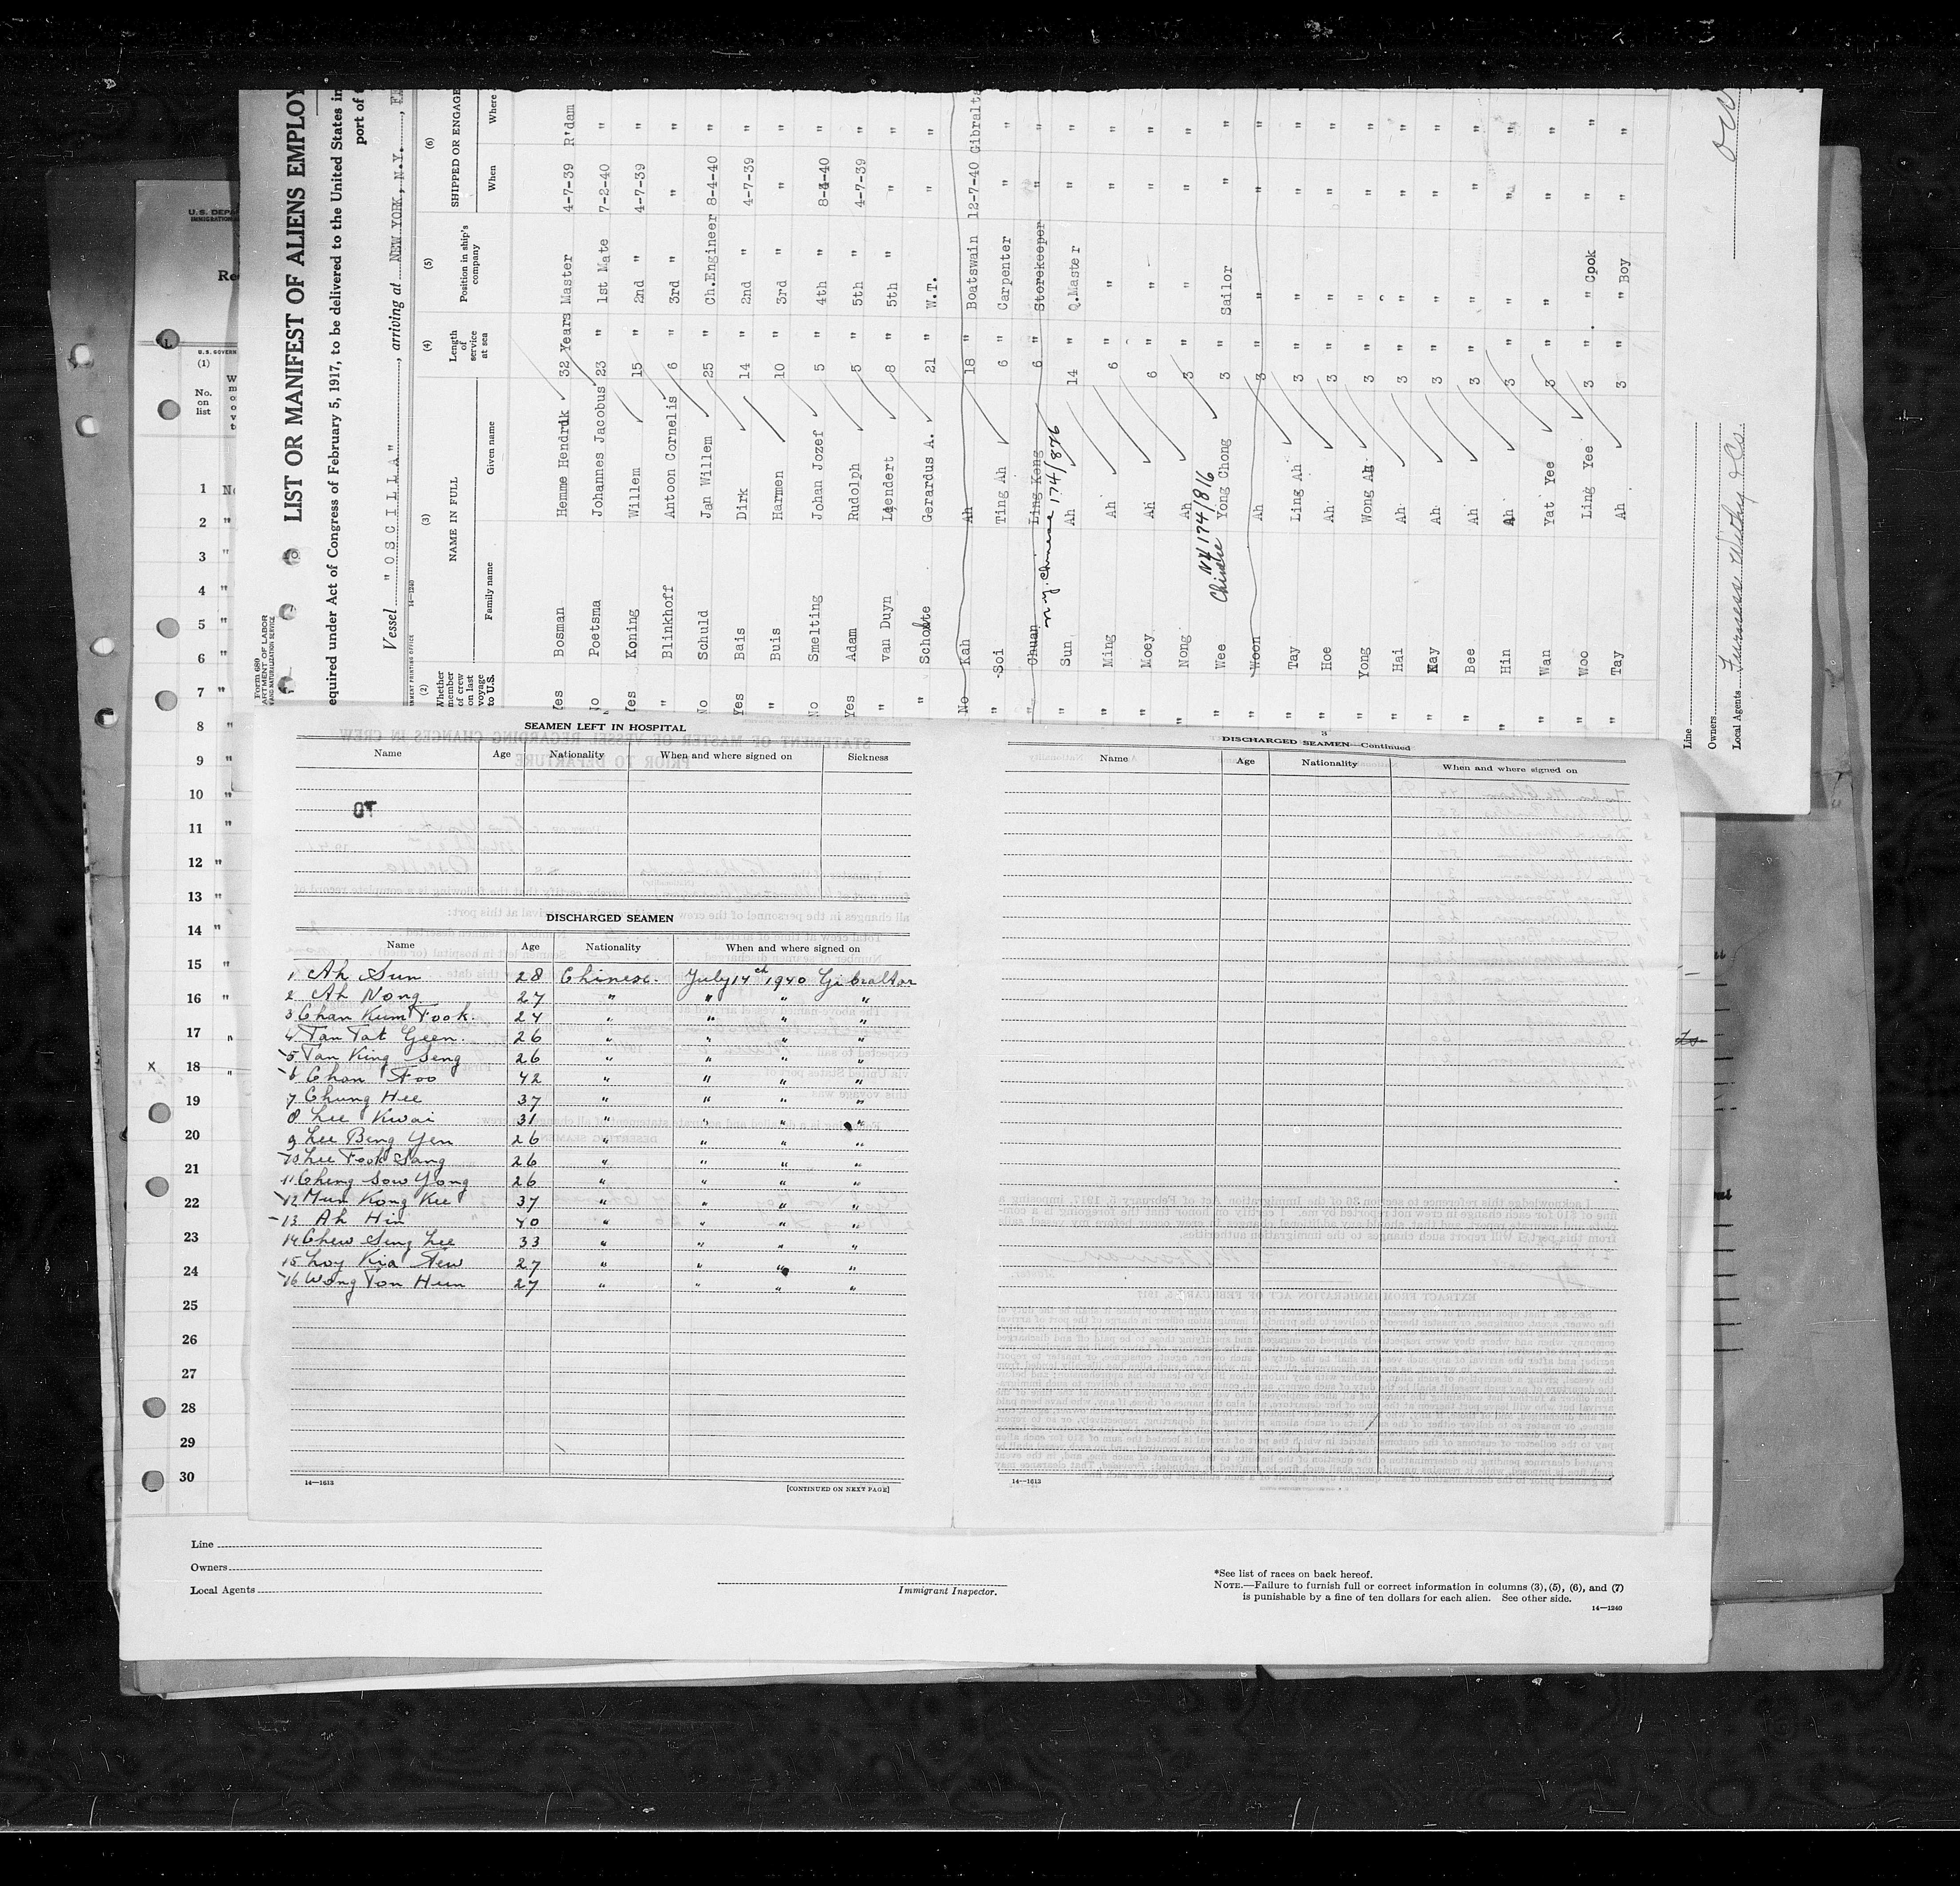 Form 689
U.S. DEPARTMENT OF LABOR
IMMIGRATION AND NATURALIZATION SERVICE
LIST OR MANIFEST OF ALIENS EMPLOY
equired under Act of Congress of February 5, 1917, to be delivered to the United States in
port of
Vessel "OSCILLA", arriving at NEW YORK, N.Y.
14—1240
(2) (3) (4) (5) (6)
Whether member of crew on last voyage to U.S. NAME IN FULL Length of service at sea Position in ship's company SHIPPED OR ENGAGE
Family name Given name When Where
Yes Bosman Hemme Hendrik 32 Years Master 4-7-39 R'dam
No Poetsma Johannes Jacobus 23 " 1st Mate 7-2-40 "
Yes Koning Willem 15 " 2nd " 4-7-39 "
" Blinkhoff Antoon Cornelis 6 " 3rd " " "
No Schuld Jan Willem 25 " Ch.Engineer 8-4-40 "
Yes Bais Dirk 14 " 2nd " 4-7-39 "
" Buis Harmen 10 " 3rd " " "
No Smelting Johan Jozef 5 " 4th " 8-4-40 "
Yes Adam Rudolph 5 " 5th " 4-7-39 "
" van Duyn Leendert 8 " 5th " " "
" Scholte Gerardus A. 21 " W.T. " "
No Kah Ah 18 " Boatswain 12-7-40 Gibralta
" Soi Ting Ah 6 " Carpenter " "
" Chuan Ling Keng 6 " Storekeeper " "
n.y. Chinese 174/876
" Sun Ah 14 " Q.Master " "
" Ming Ah 6 " " " "
" Moey Ah 6 " " " "
" Nong Ah 3 " " " "
NY 174/816
Chinese
" Wee Yong Chong 3 " Sailor " "
" Woon Ah 3 " " " "
" Tay Ling Ah 3 " " " "
" Hoe Ah 3 " " " "
" Yong Wong Ah 3 " " " "
" Hai Ah 3 " " " "
" Kay Ah 3 " " " "
" Bee Ah 3 " " " "
" Hin Ah 3 " " " "
" Wan Yat Yee 3 " " " "
" Woo Ling Yee 3 " " Cook " "
" Tay Ah 3 " " Boy " "
Line
Owners
Local Agents Furness Withy & Co.
U.S. DEPA
IMMIGRATION
Re
U.S. GOVERN
(1)
No. on list
1
2 "
3 "
4 "
5 "
6 "
7 "
8 "
9 "
10 "
11 "
12 "
13 "
14 "
15 "
16 "
17 "
x 18 "
19
20
21
22
23
24
25
26
27
28
29
30
SEAMEN LEFT IN HOSPITAL
Name Age Nationality When and where signed on Sickness
DISCHARGED SEAMEN
Name Age Nationality When and where signed on
1 Ah Sun 28 Chinese. July 14 1940 Gibraltar
2 Ah Nong 27 " " " "
3 Chan Kum Fook. 24 " " " "
4 Tan Tat Geen. 26 " " " "
5 Tan King Seng 26 " " " "
6 Chan Foo 42 " " " "
7 Chung Hee 37 " " " "
8 Lee Kwai 31 " " " "
9 Lee Beng Yen 26 " " " "
10 Lee Fook Sang 26 " " " "
11 Cheng Sow Yong 26 " " " "
12 Mun Kong Kee 37 " " " "
13 Ah Hin 40 " " " "
14 Chew Seng Lee 33 " " " "
15 Loy Kia Few 27 " " " "
16 Wong Ton Hun 27 " " " "
14—1613 [CONTINUED ON NEXT PAGE]
3
DISCHARGED SEAMEN—Continued
Name Age Nationality When and where signed on
14—1613
Line
Owners
Local Agents
Immigrant Inspector.
*See list of races on back hereof.
NOTE.—Failure to furnish full or correct information in columns (3), (5), (6), and (7)
is punishable by a fine of ten dollars for each alien. See other side.
14—1240